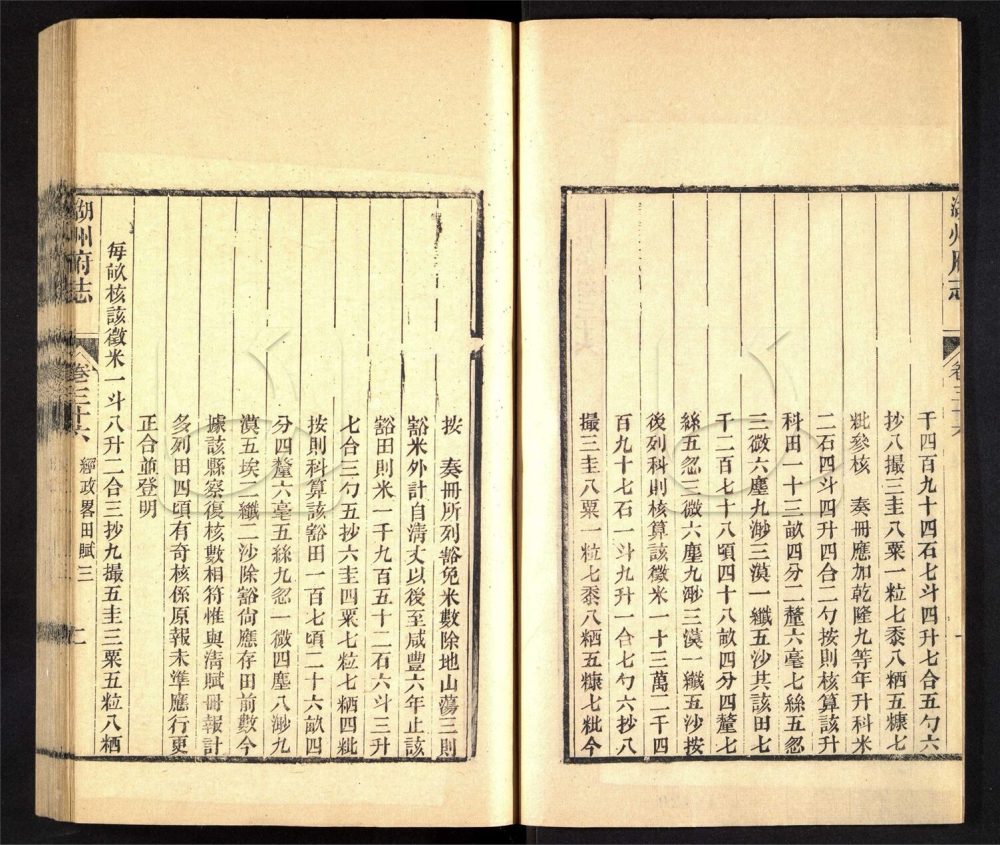 千四百九十四石七斗四升七合五勺六
抄八撮三圭八粟一粒七黍八粞五糠七
粃參核　奏冊應加乾隆九等年升科米
二石四斗四升四合二勺按則核算該升
科田一十三畝四分二釐六毫七絲五忽
三微六塵九渺三漠一纖五沙共該田七
千二百七十八頃四十八畝四分四釐七
絲五忽三微六塵九渺三漠一纖五沙按
後列科則核算該徵米一十三萬二千四
百九十七石一斗九升一合七勺六抄八
撮三圭八粟一粒七黍八粞五糠七粃今
按　奏冊所列豁免米數除地山蕩三則
豁米外計自淸丈以後至咸豐六年止該
豁田則米一千九百五十二石六斗三升
七合三勺五抄六圭四粟七粒七粞四粃
按則科算該豁田一百七頃二十六畝四
分四釐六毫五絲九忽一微四塵八渺九
漠五埃二纖二沙除豁尙應存田前數今
據該縣察復核數相符惟與淸賦冊報計
多列田四頃有奇核係原報未準應行更
正合並登明
每畝核該徵米一斗八升二合三抄九撮五圭三粟五粒八粞
湖州府志
卷三十六
經政畧田賦三
二